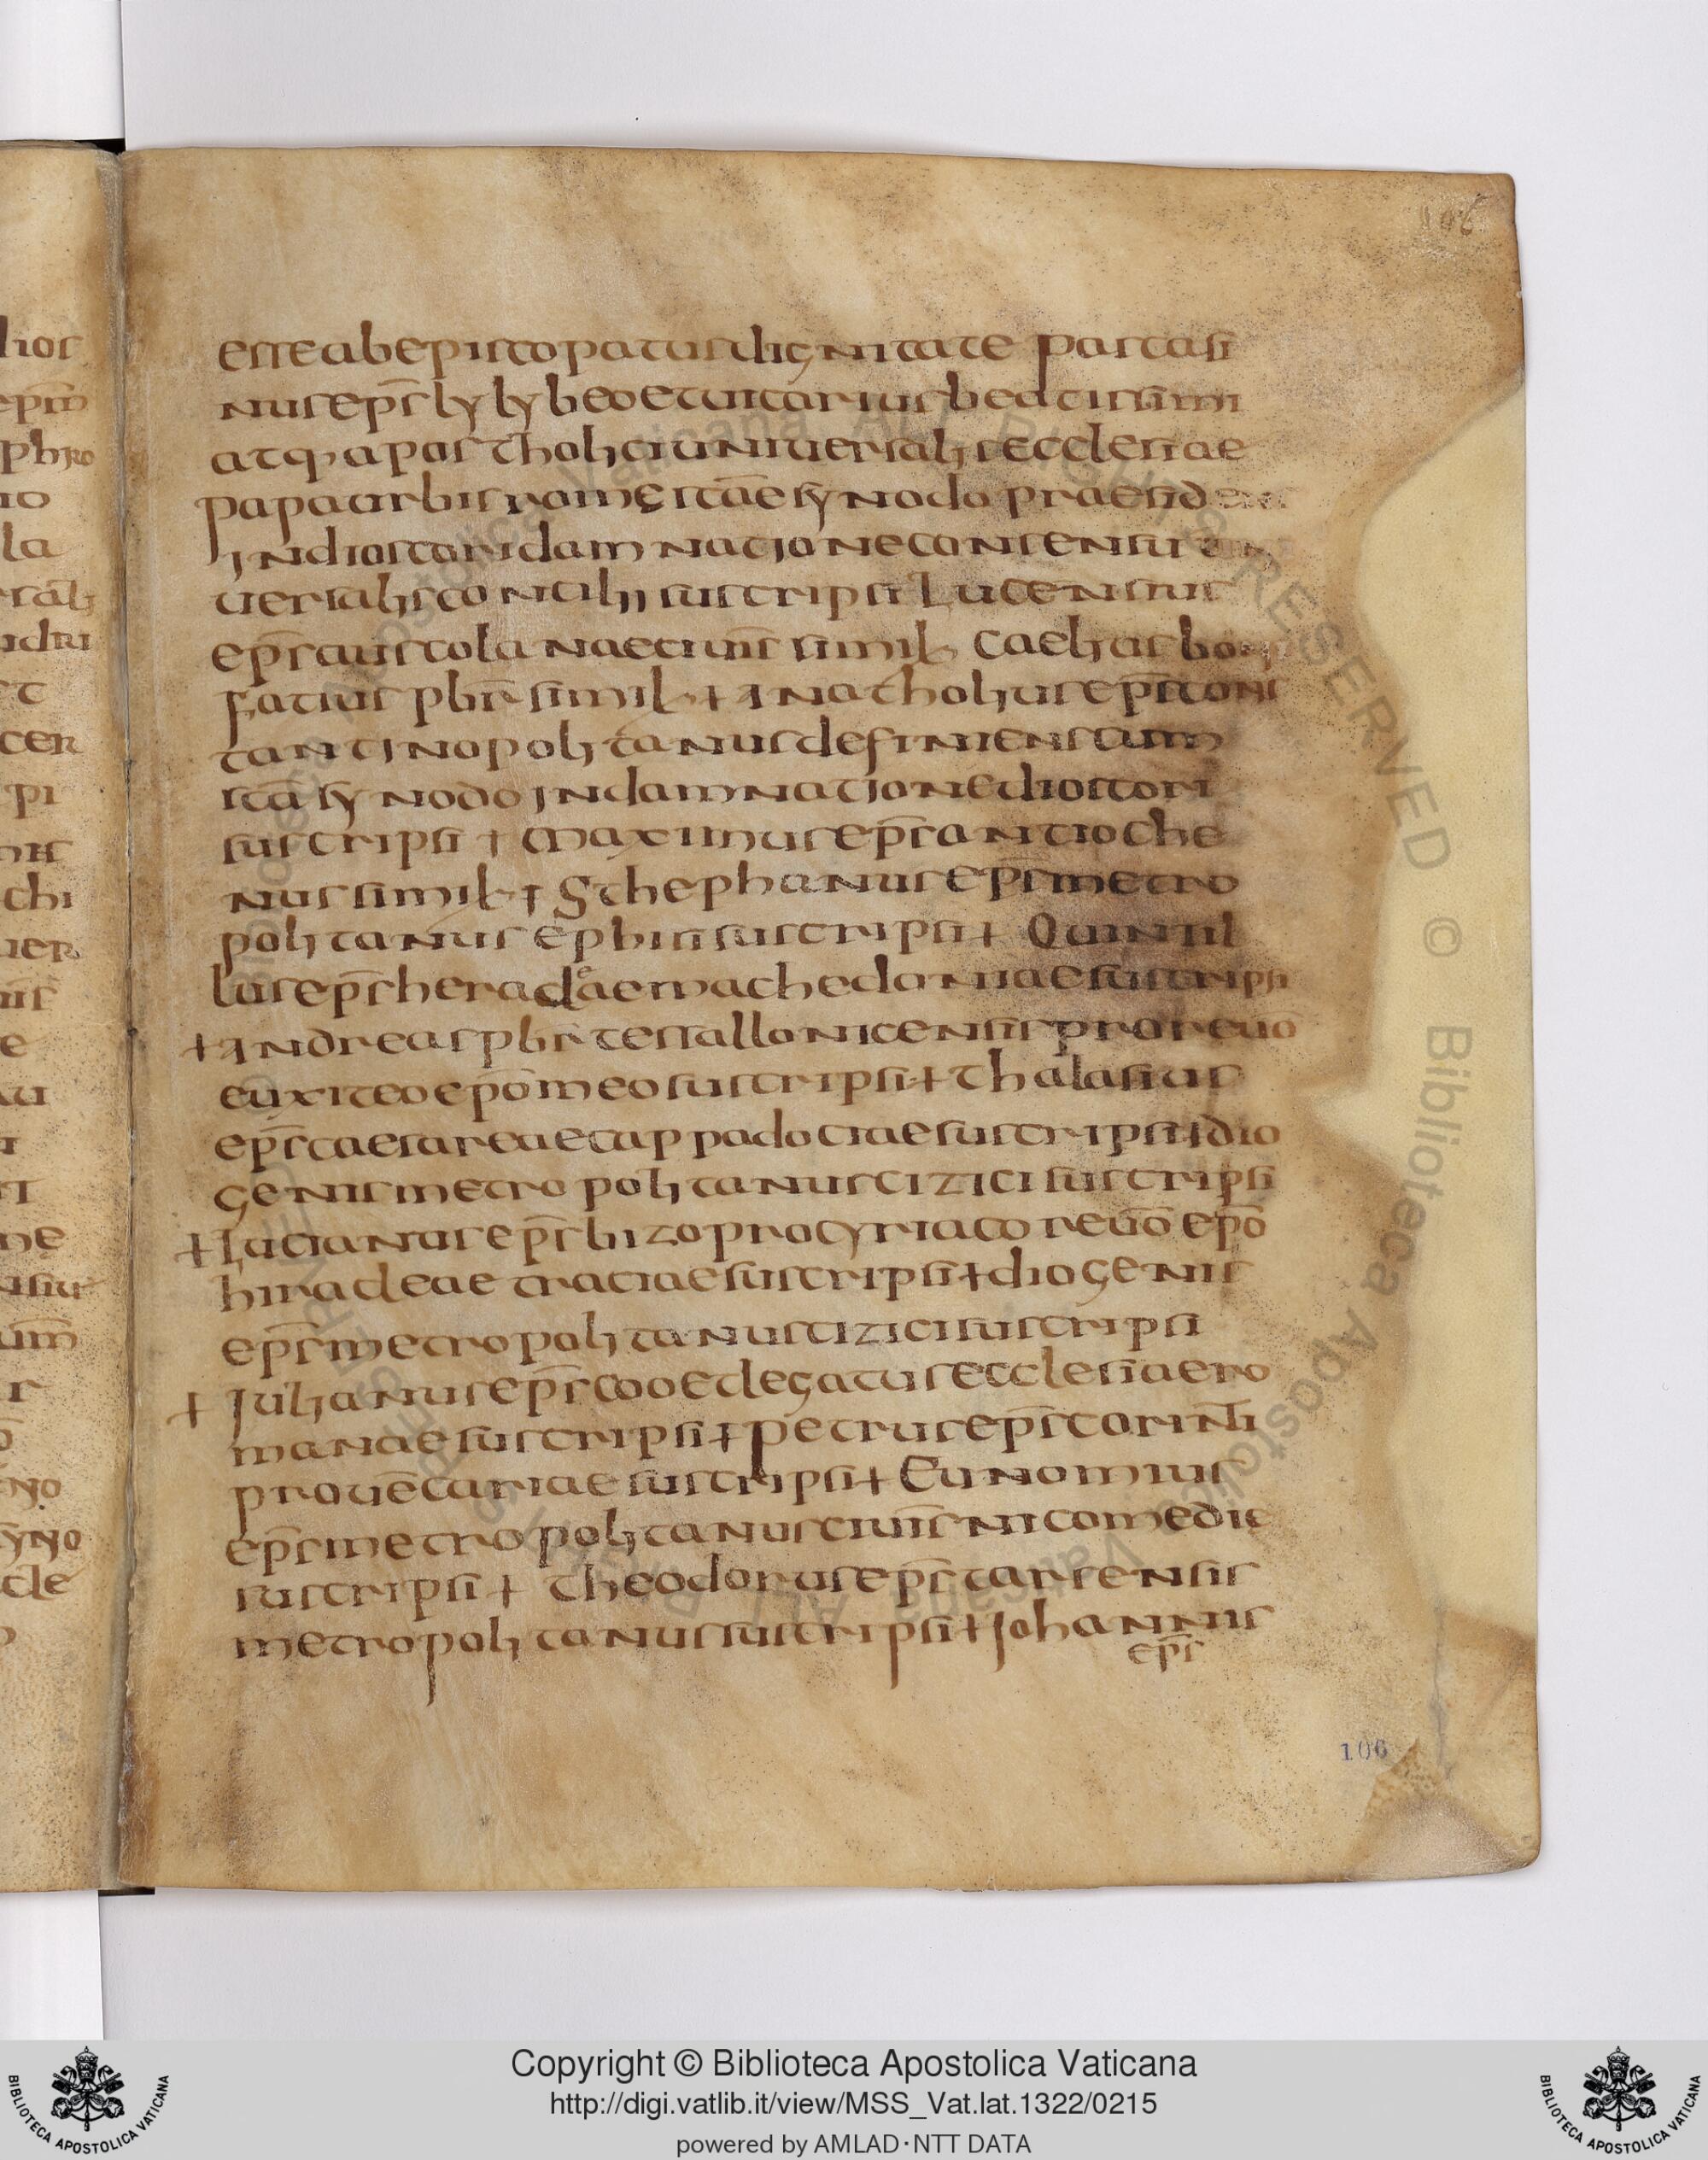 106
esse ab episcopatus dignitate Pascasi
nus ep̅s lylybeo et uicarius beatissimi
atq; apostholici uniuersalis ecclesiae
papae urbis rome sc̅ae synodo praesidens
in dioscori damnatione consensu
uersalis concilii suscripsi Lucensius
ep̅s ausculanae ciuit̅s simil Caelias boni
fatius pbr̅ simil + Anatholius ep̅s cons
tantinopolitanus definiens cum
sc̅a synodo in damnatione dioscori
suscripsi + Maximus ep̅s antioche
nus simil + Sthephanus ep̅s metro
politanus ephisi suscripsi + Quintil
lus ep̅s heracleae machedoniae suscripsi
+ Andreas pbr̅ tessallonicensis pro reuō
euxiteo ep̅o meo suscripsi + Thalasius
ep̅s caesareae cappadociae suscripsi + dio
genis metropolitanus cizici suscripsi
+ Lucianus ep̅s bizo pro cyriaco reuō ep̅o
hiracleae traciae suscripsi + diogenis
ep̅s metropolitanus cizici suscripsi
+ Iulianus ep̅s coo et legatus ecclesiae ro
manae suscripsi + Petrus ep̅s corinti
prouētariae suscripsi + Eunomius
ep̅s metropolitanus ciuit̅s nicomedie
suscripsi + Theodorus ep̅s tarsensis
metropolitanus suscripsi + Iohannis
ep̅s
106
Copyright © Biblioteca Apostolica Vaticana
http://digi.vatlib.it/view/MSS_Vat.lat.1322/0215
powered by AMLAD·NTT DATA